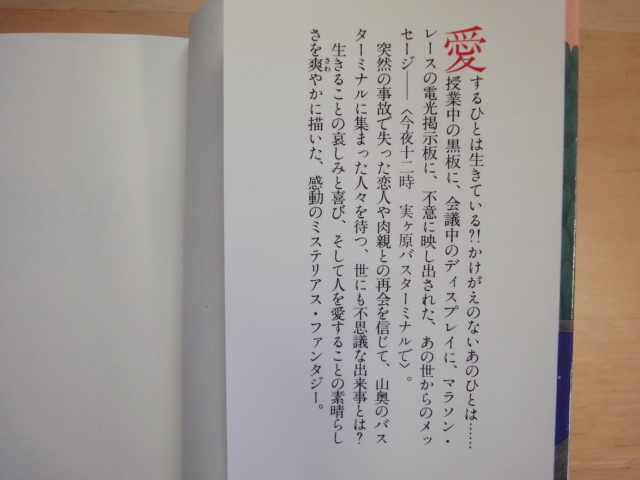 愛するひとは生きている?!かけがえのないあのひとは……
授業中の黒板に、会議中のディスプレイに、マラソン・
レースの電光掲示板に、不意に映し出された、あの世からのメッ
セージ――〈今夜十二時　実ヶ原バスターミナルで〉。
突然の事故で失った恋人や肉親との再会を信じて、山奥のバス
ターミナルに集まった人々を待つ、世にも不思議な出来事とは?
生きることの哀しみと喜び、そして人を愛することの素晴らし
さを爽やかに描いた、感動のミステリアス・ファンタジー。
さわ